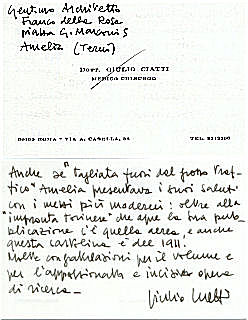 Gentimo Architetto
Franco della Rosa
piazza G. Marconi 5
Amelia (Terni)
DOTT. GIULIO CIATTI
MEDICO CHIRURGO
ROMA - VIA A. CASELLA,
TEL.
Anche se "tagliata fuori dal grosso traf-
fico" Amelia presentava i suoi saluti
con i mezzi più moderni: oltre alla
"impronta torinese" che apre la sua pub-
blicazione c'è quella aerea, e anche
questa cartolina è del 1911.
Molte congratulazioni per il volume e
per l'appassionata e incisiva opera
di ricerca.
Giulio Ciatti